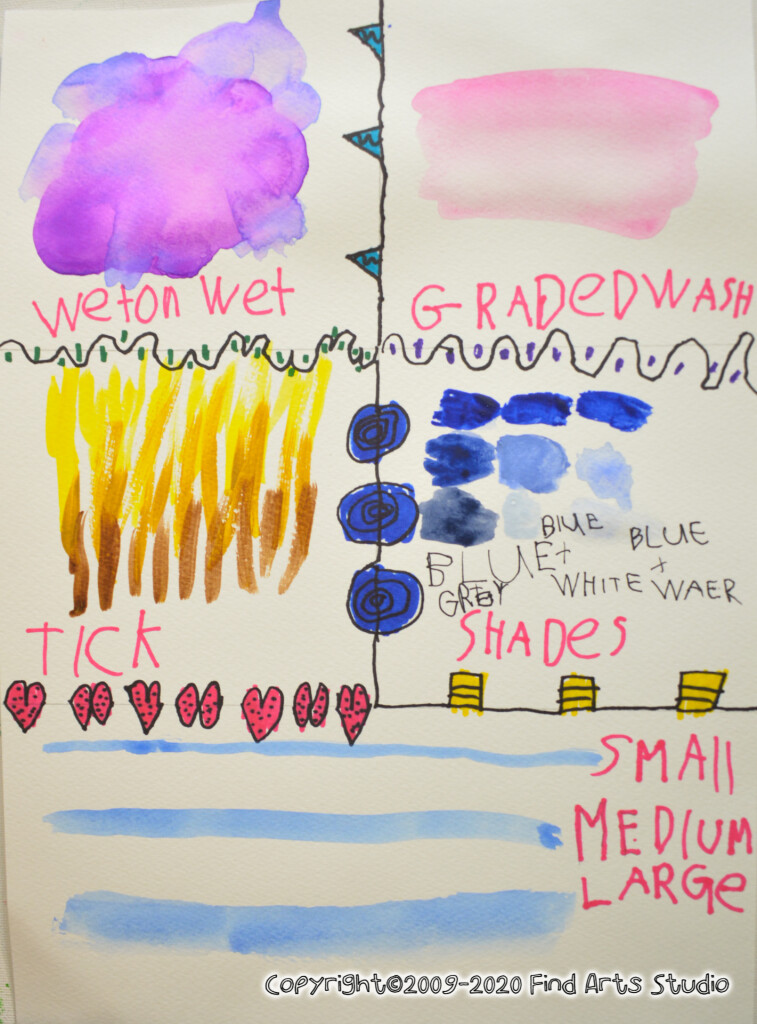 weton wet
GRADEDWASH
BlUE
BLUE
BLUE +
+
GREY
WHITE
WAER
TICK
SHADES
SMAll
MEDIUM
LARGe
Copyright©2009-2020 Find Arts Studio